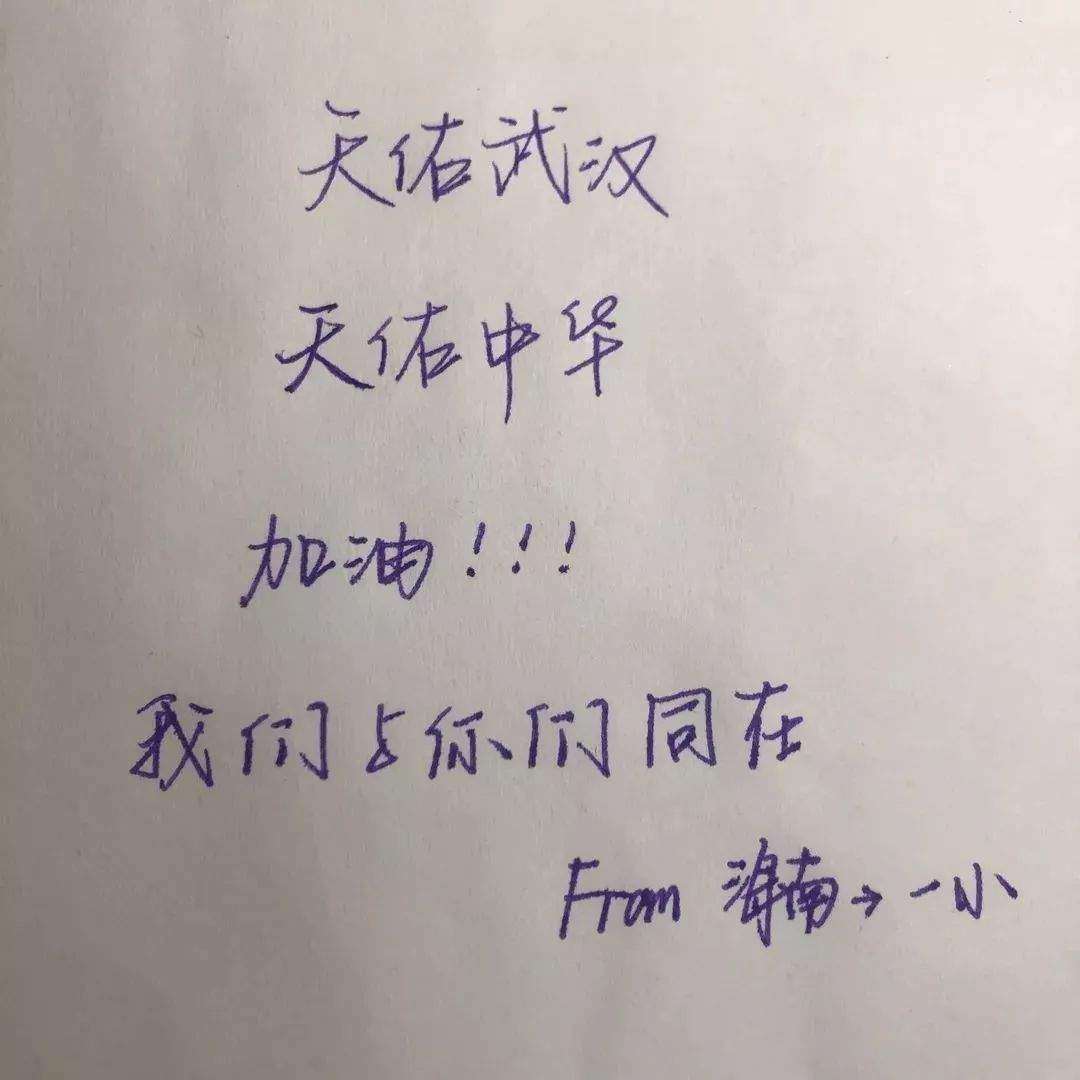 天佑武汉
天佑中华
加油!!!
我们与你们同在
From 海南→一小